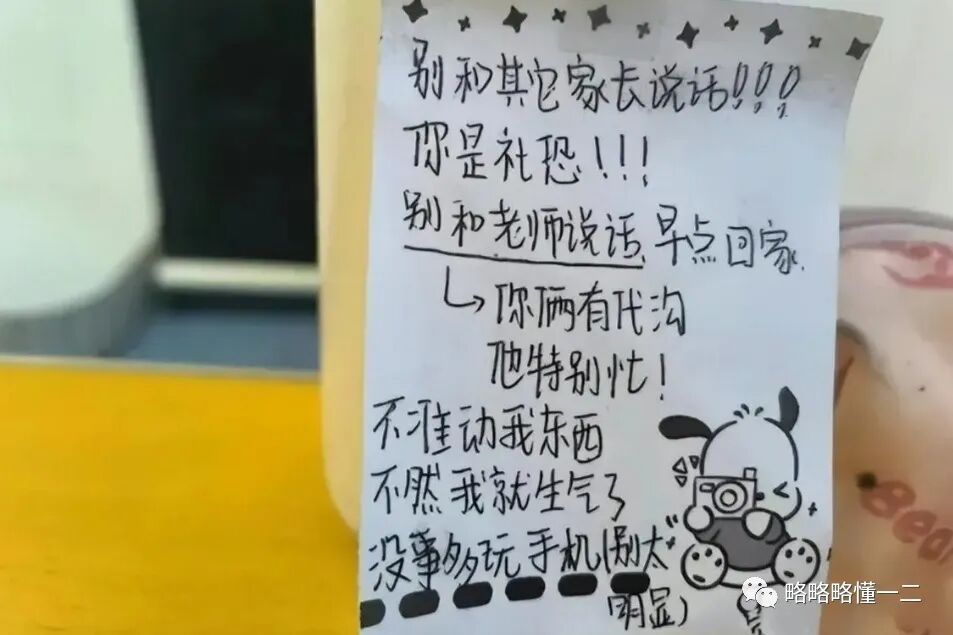 别和其它家长说话!!!
你是社恐!!!
别和老师说话,早点回家.
你俩有代沟
他特别忙!
不准动我东西
不然我就生气了
没事多玩手机(别太
明显)
Bear
略略略懂一二